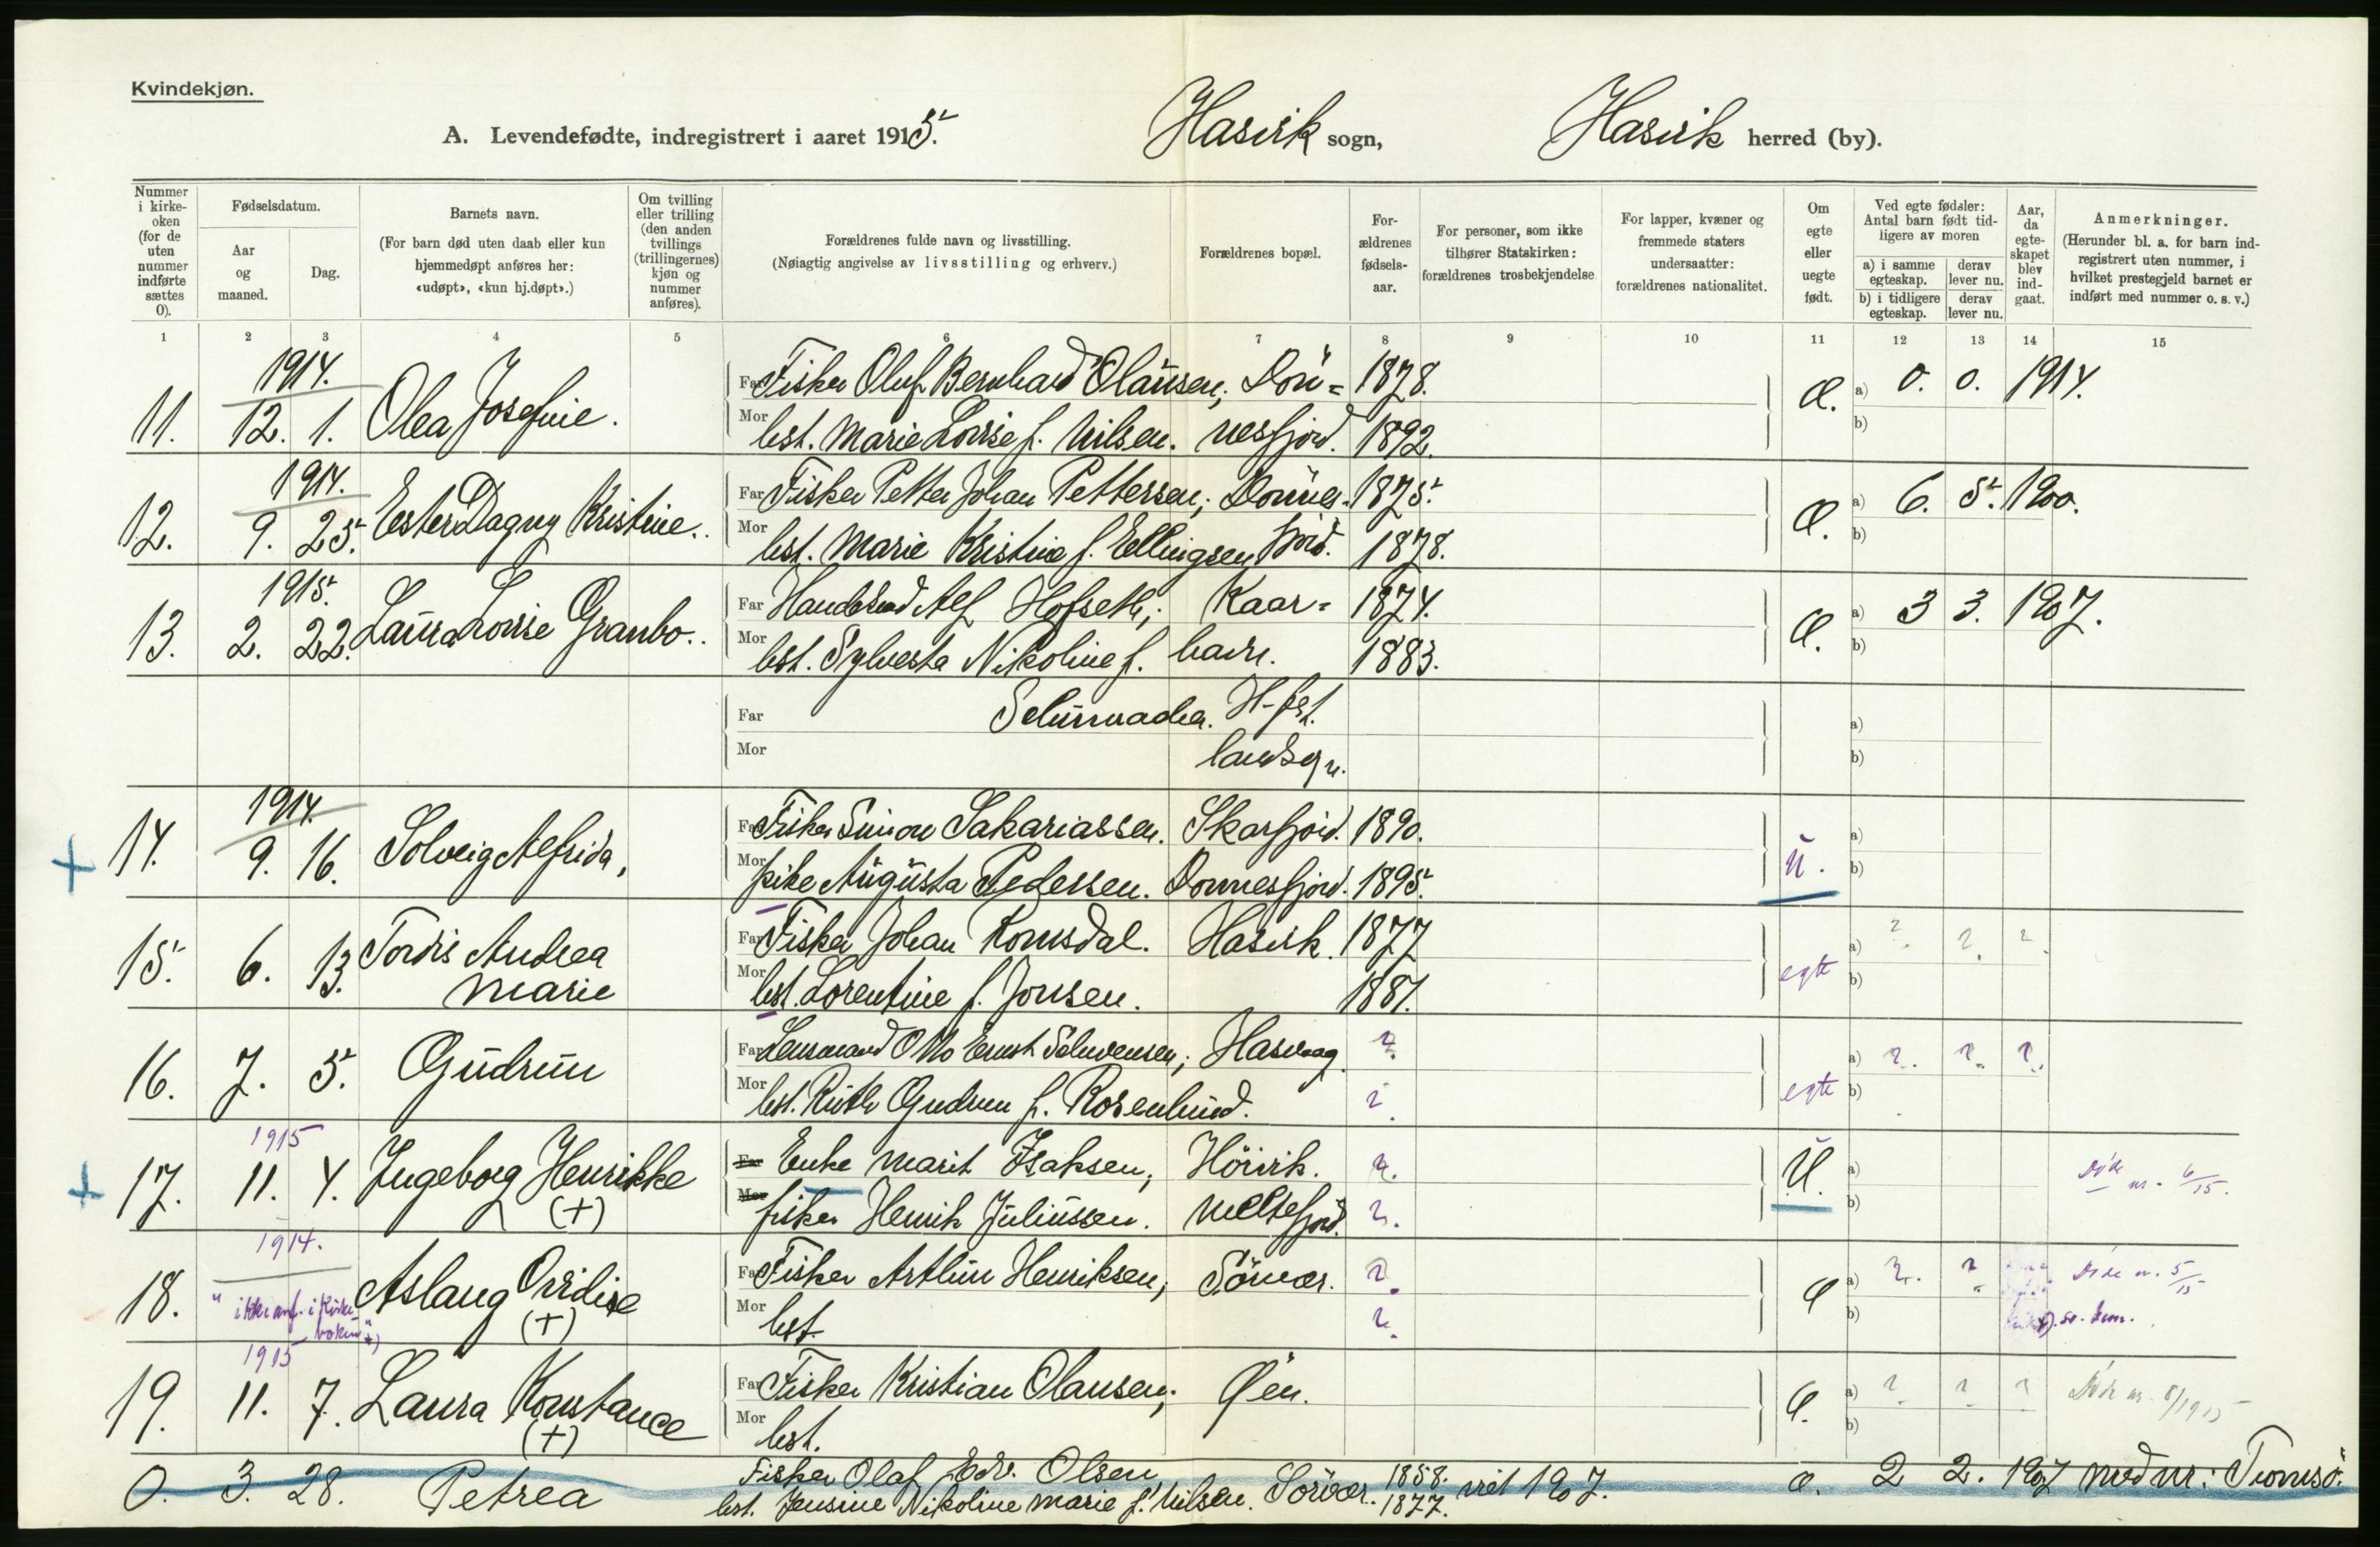 Kvindekjøn.
A. Levendefødte, indregistrert i aaret 1915. Hasvik sogn, Hasvik herred (by).
Nummer i kirke-oken (for de uten nummer indførte sættes 0).
Fødselsdatum.
Aar og maaned.
Dag.
Barnets navn.
(For barn død uten daab eller kun hjemmedøpt anføres her: «udøpt», «kun hj.døpt».)
Om tvilling eller trilling (den anden tvillings (trillingernes) kjøn og nummer anføres).
Forældrenes fulde navn og livsstilling.
(Nøiagtig angivelse av livsstilling og erhverv.)
Forældrenes bopæl.
For-ældrenes fødsels-aar.
For personer, som ikke tilhører Statskirken: forældrenes trosbekjendelse
For lapper, kvæner og fremmede staters undersaatter: forældrenes nationalitet.
Om egte eller uegte født.
Ved egte fødsler: Antal barn født tid-ligere av moren
a) i samme egteskap.
derav lever nu.
b) i tidligere egteskap.
derav lever nu.
Aar, da egte-skapet blev ind-gaat.
Anmerkninger.
(Herunder bl. a. for barn ind-registrert uten nummer, i hvilket prestegjeld barnet er indført med nummer o. s. v.)
1 2 3 4 5 6 7 8 9 10 11 12 13 14 15
1914.
11. 12. 1. Olea Josefine. Far Fisker Oluf Bernhard Olaüsen; Dön= 1878. E. a) 0. 0. 1914.
Mor hst. Marie Lovise f. Nilsen. nesfjord. 1892. b)
1914.
12. 9. 25. Ester Dagny Kristine. Far Fisker Petter Johan Pettersen; Dönnes- 1875. E. a) 6. 5. 1900.
Mor hst. Marie Kristine f. Ellingsen fjord. 1878. b)
1915.
13. 2. 22. Laüra Lovise Granbo. Far Handelsmd Alf Hofseth; Kaar= 1874. E. a) 3 3. 1907.
Mor hst. Sylvesta Nikoline f. havn. 1883. b)
Far H-fest. a)
Mor landsgn. b)
1914.
+ 14. 9. 16. Solveig Alfrida, Far Fisker Simon Sakariassen. Skarfjord. 1890. ü. a)
Mor pike Augüsta Pedersen. Donnesfjord. 1895. b)
15. 6. 13. Tordis Andrea Far Fisker Johan Romsdal. Hasvik. 1877 egte a) ? ? ?
Marie Mor hst. Lorentine f. Jonsen. 1881. b)
16. 7. 5. Güdrün Far Lensmand Otto Ernst ; Hasvaag. ? egte a) ? ? ?
Mor hst. Rüth Gudrun f. Rosenlund. ? b)
1915
+ 17. 11. 4. Ingeborg Henrikke Far Enke Marit Isaksen, Hörvik. ? U. a) Døde nr. 6/15.
(+) Mor fisker Henrik Juliüssen. Meltefjord. ? b)
1914.
18. "ikke anf. i Kirkeboken" *) Aslaug Far Fisker Arthür Henriksen, Sörvær. ? E a) ? ? Døde nr. 5/15
(+) Mor hst. ? b)
1915
19. 11. 7. Laura Konstance Far Fisker Kristian Olausen; Øen. E. a) ? ? ? Døde nr. 8/1915
(+) Mor hst. b)
0. 3. 28. Petrea Fisker Olaf Edv. Olsen Sörvær. 1858. viet 1907. E. 2 2. 1907 med nr: Tromsö.
hst. Jensine Nikoline Marie f. Nilsen. 1877.